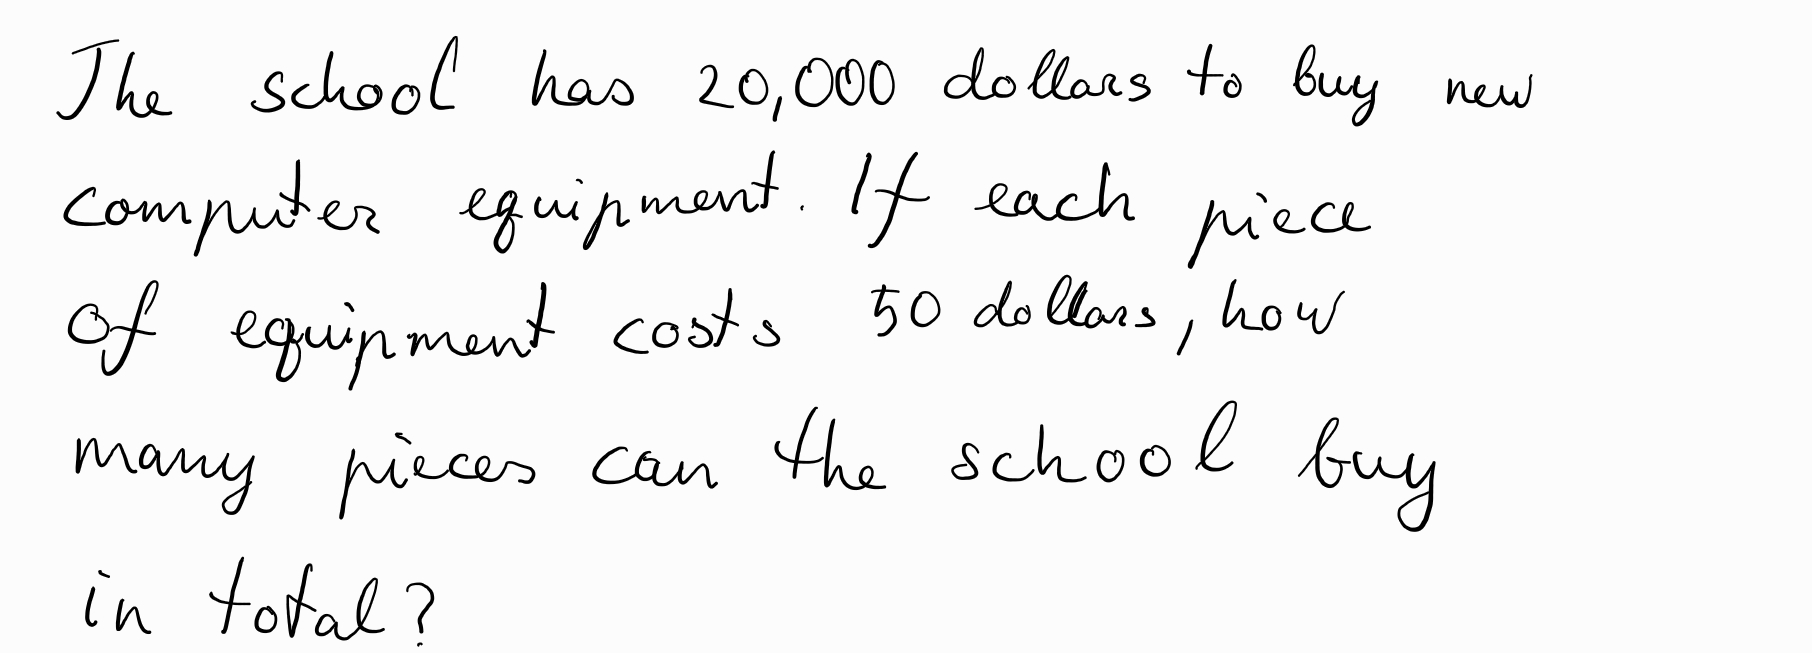 The school has 20,000 dollars to buy new
computer equipment. If each piece
of equipment costs 50 dollars, how
many pieces can the school buy
in total?